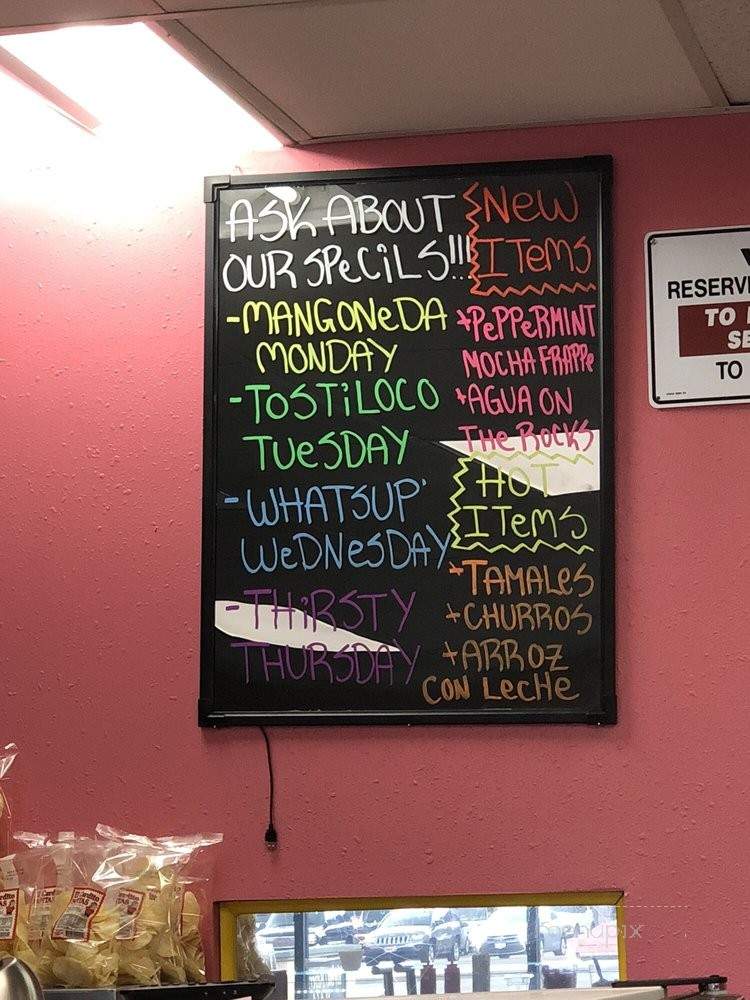 ASK ABOUT
OUR SPeCiLS!!!
-MANGONeDA
MONDAY
-TOSTiLOCO
TUeSDAY
-WHATSUP'
WeDNeSDAY
-THiRSTY
THURSDAY
NeW
ITeMS
+PePPeRMINT
MOCHA FRAPPe
*AGUA ON
THe ROCKS
HOT
ITeMS
-TAMALeS
+CHURROS
+ARROZ
CON LeCHe
RESERV
TO
SE
TO
menupix